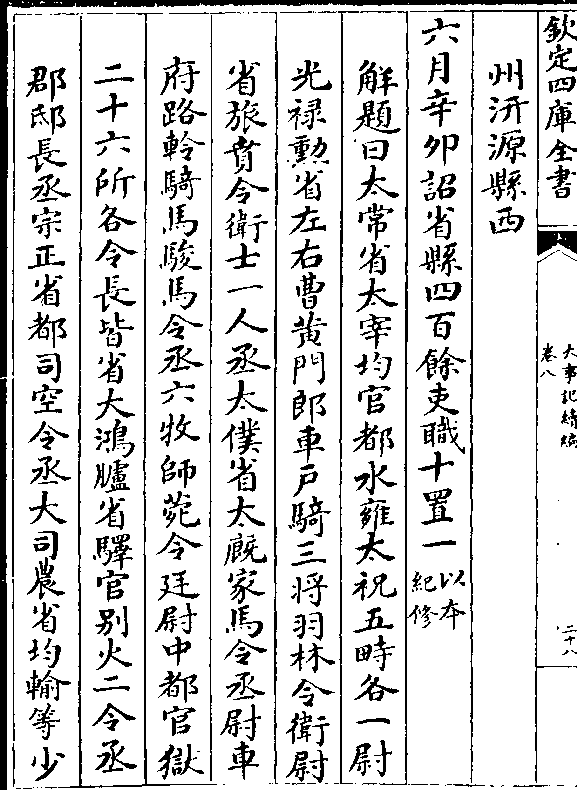 欽定四庫全書
大事記續編
卷八
二十八
州汧源縣西
六月辛卯詔省縣四百餘吏職十置一以本紀修
解題曰太常省太宰均官都水雍太祝五畤各一尉
光祿勲省左右曹黄門郎車戶騎三將羽林令衛尉
省旅賁令衛士一人丞太僕省太廐家馬令丞尉車
府路軨騎馬駿馬令丞六牧師菀令廷尉中都官獄
二十六所各令長皆省大鴻臚省驛官别火二令丞
郡邸長丞宗正省都司空令丞大司農省均輸等少